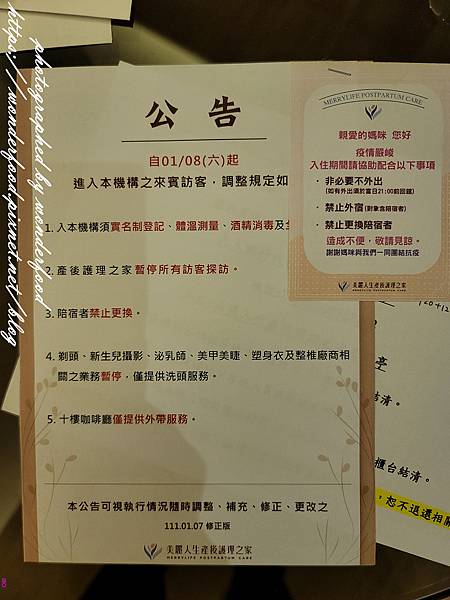 公 告
自01/08(六)起
進入本機構之來賓訪客，調整規定如
1. 入本機構須實名制登記、體溫測量、酒精消毒及全
2. 產後護理之家暫停所有訪客探訪。
3. 陪宿者禁止更換。
4. 剃頭、新生兒攝影、泌乳師、美甲美睫、塑身衣及整椎廠商相
關之業務暫停，僅提供洗頭服務。
5. 十樓咖啡廳僅提供外帶服務。
本公告可視執行情況隨時調整、補充、修正、更改之
111.01.07 修正版
美麗人生產後護理之家
MERRYLIFE POSTPARTUM CARE
MERRYLIFE POSTPARTUM CARE
親愛的媽咪 您好
疫情嚴峻
入住期間請協助配合以下事項
· 非必要不外出
(如有外出須於當日21:00前回館)
· 禁止外宿(對象含陪宿者)
· 禁止更換陪宿者
造成不便，敬請見諒。
謝謝媽咪與我們一同團結抗疫
美麗人生產後護理之家
結清。
櫃台結清。
，恕不退還相關
photographed by wondergood
https://wondergood.pixnet.net/blog